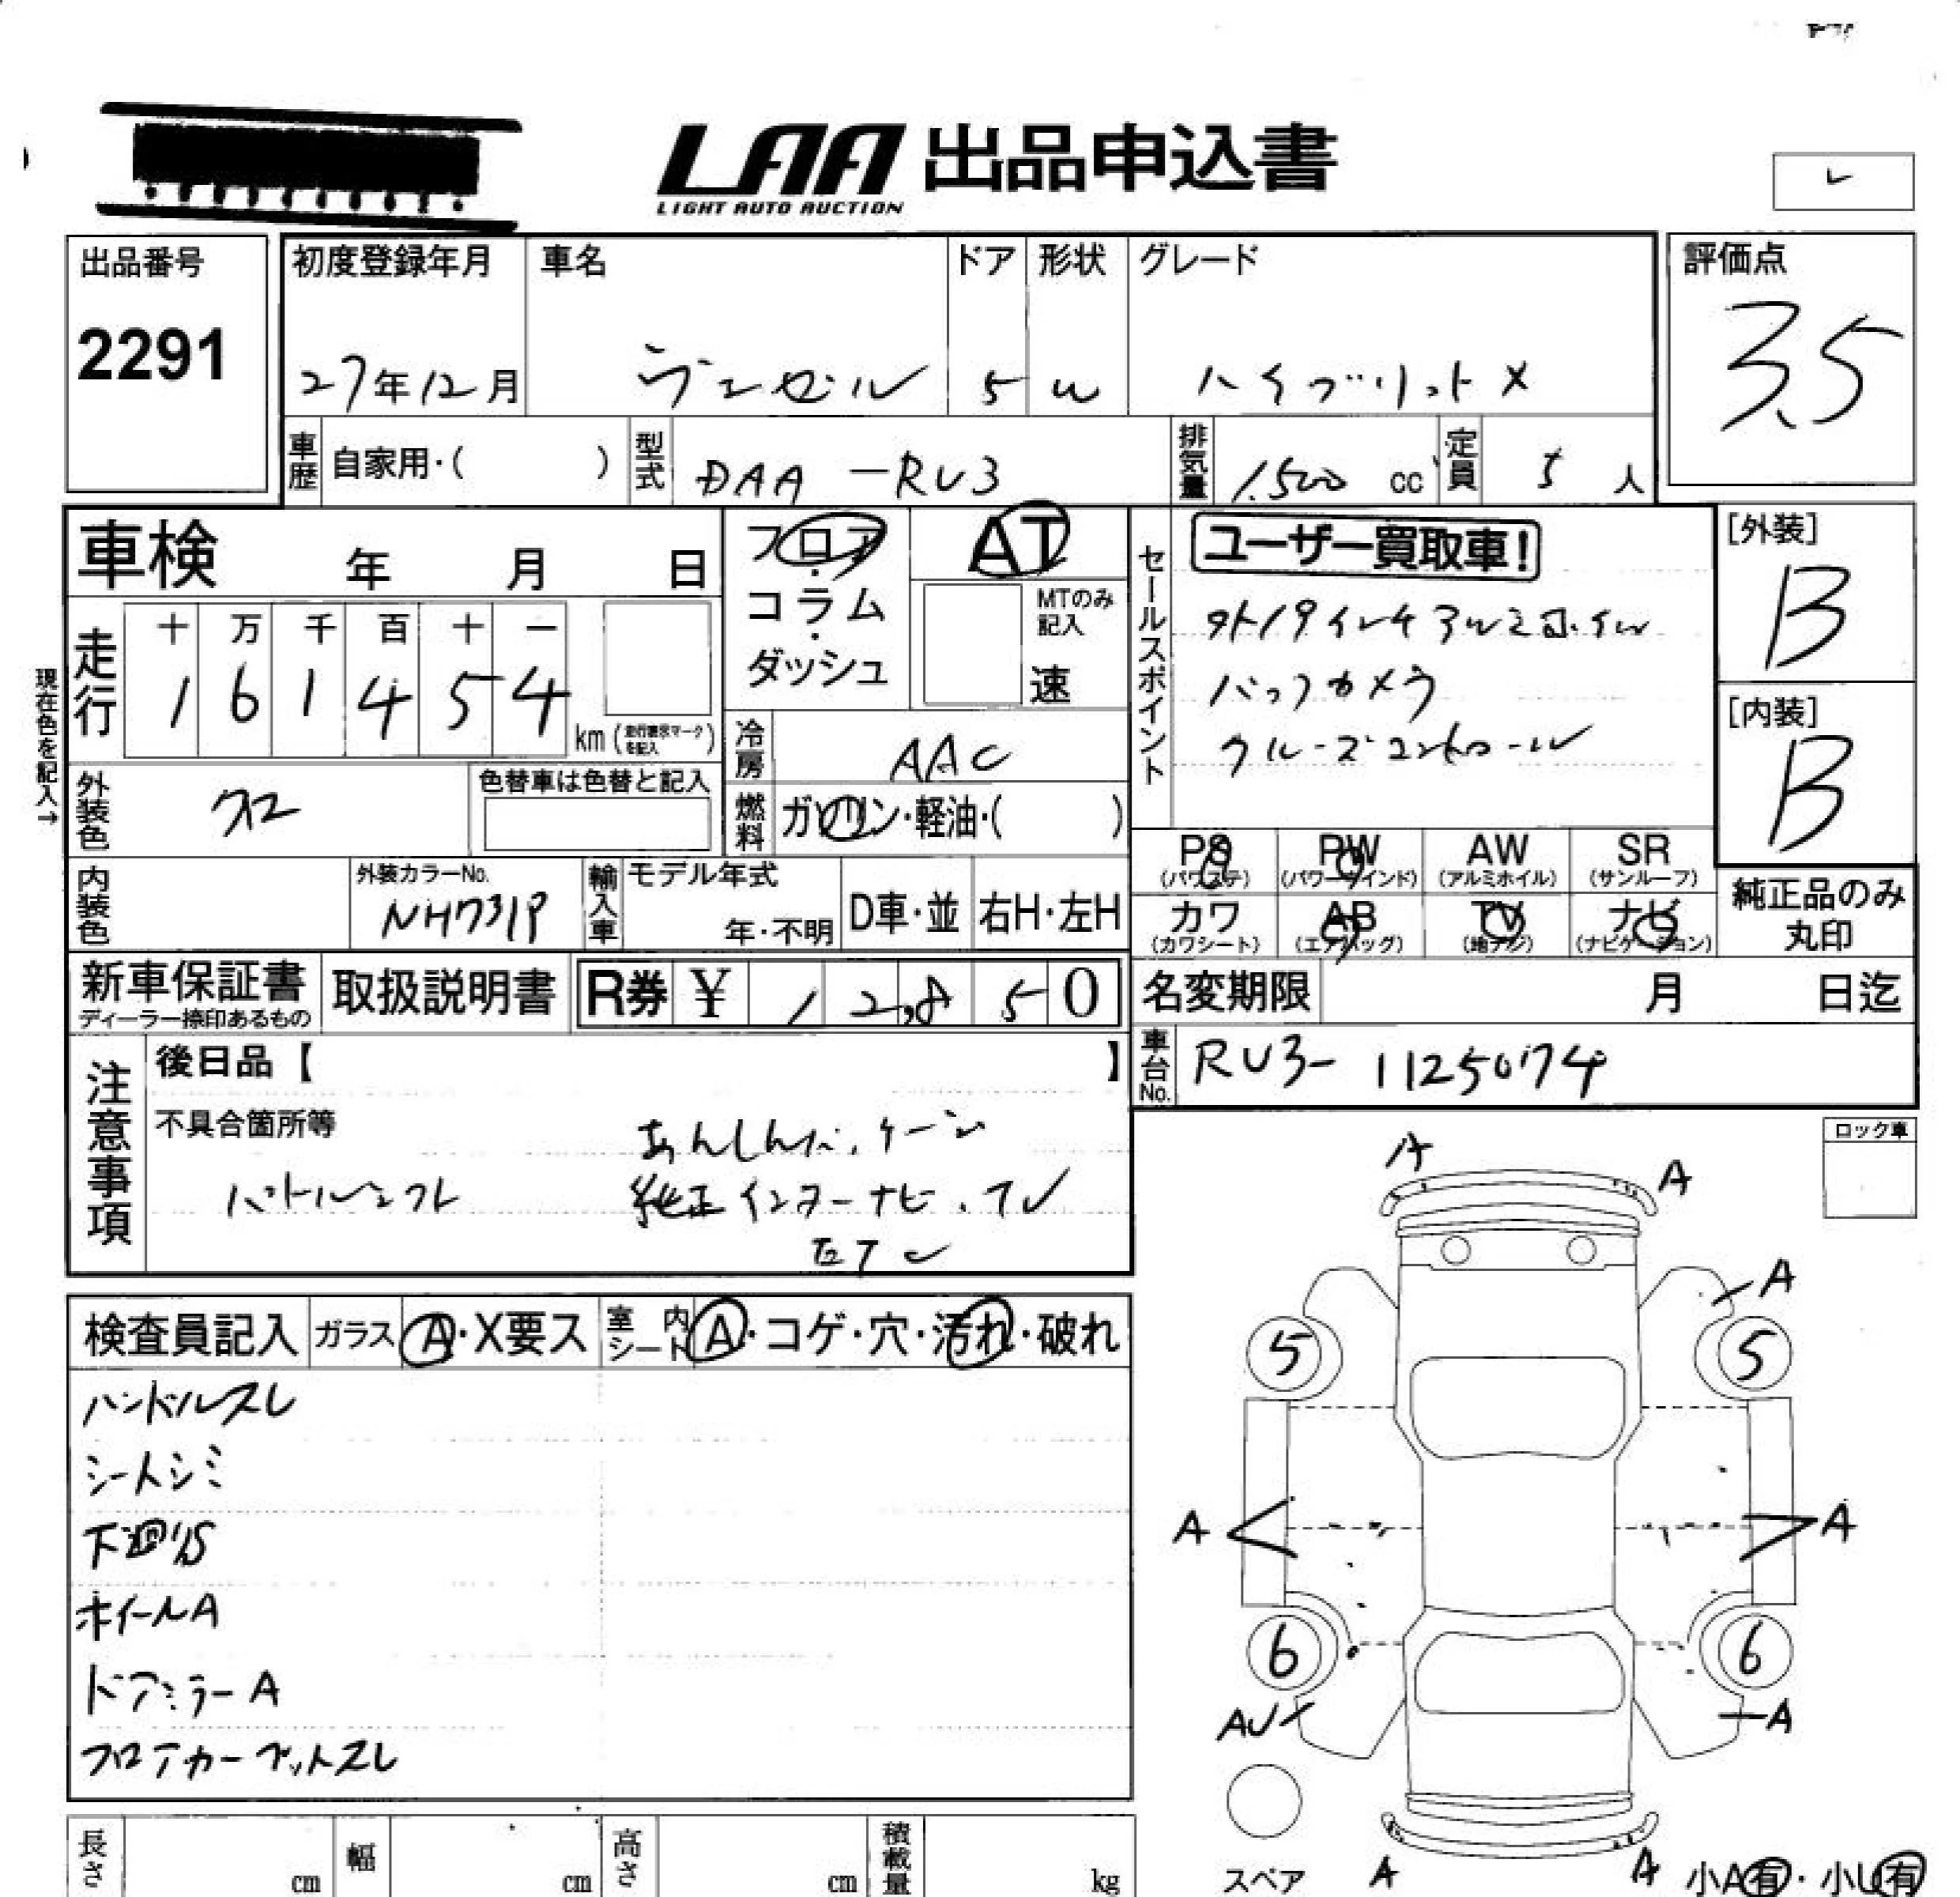 LAA 出品申込書
LIGHT AUTO AUCTION
出品番号
2291
初度登録年月
27年12月
車名
ヴェゼル
ドア
5
形状
W
グレード
ハイブリットX
評価点
3.5
車歴
自家用・( )
型式
DAA-RU3
排気量
1,500 cc
定員
5 人
車検 年 月 日
フロア・コラム・ダッシュ
AT
MTのみ記入
速
セールスポイント
ユーザー買取車!
社外19インチアルミホイル
バックカメラ
クルーズコントロール
[外装]
B
[内装]
B
現在色を記入→
走行
十 万 千 百 十 一
1 6 1 4 5 4
km (走行表示マークを記入)
冷房
AAC
外装色
クロ
色替車は色替と記入
燃料
ガソリン・軽油・( )
PS (パワステ)
PW (パワーウインド)
AW (アルミホイル)
SR (サンルーフ)
カワ (カワシート)
AB (エアバッグ)
TV (地デジ)
ナビ (ナビゲーション)
純正品のみ丸印
内装色
外装カラーNo.
NH731P
輸入車
モデル年式
年・不明
D車・並
右H・左H
新車保証書
ディーラー捺印あるもの
取扱説明書
R券 ¥ 12,850
名変期限 月 日迄
車台No.
RU3-1125074
注意事項
後日品【 】
不具合箇所等
あんしんパッケージ
パドルシフト
純正インターナビ・TV
ETC
ロック車
検査員記入
ガラス A・X要ス
室内シート A・コゲ・穴・汚れ・破れ
ハンドルスレ
シートシミ
下廻りS
ホイールA
ドアミラーA
フロアカーペットスレ
A
A
A
5
5
A
A
6
6
AU
A
スペア
A
A
小A有・小U有
長さ cm
幅 cm
高さ cm
積載量 kg